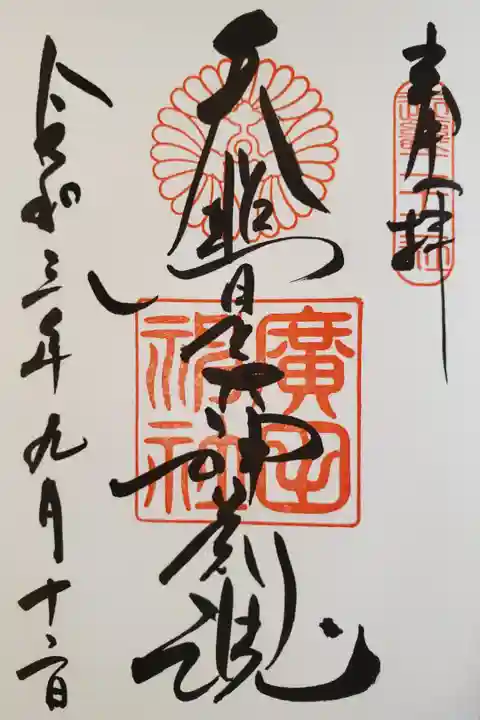 奉拝
天照皇大神荒魂
廣田神社
令和三年九月十二日